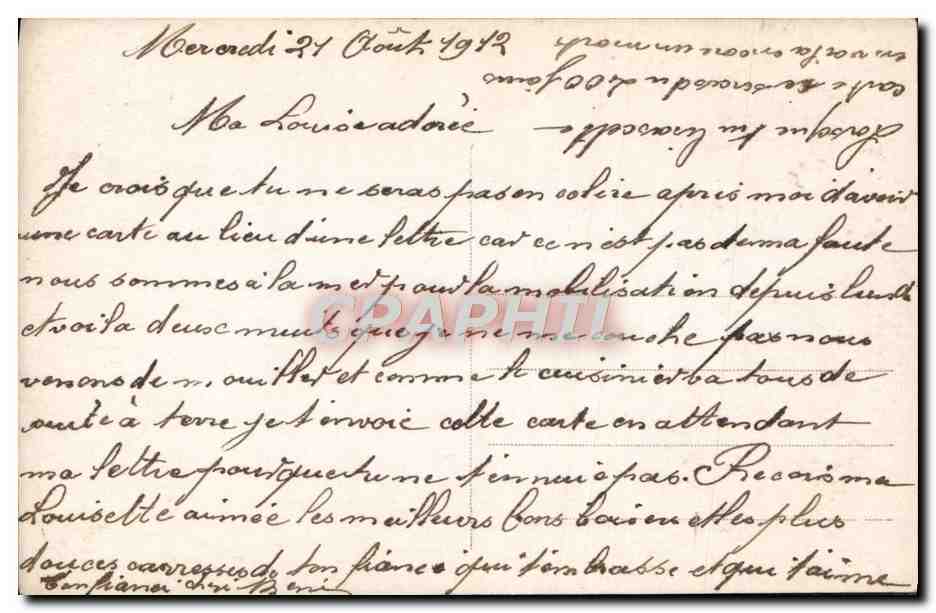 Mercredi 21 Août 1912
Ma Louise adorée
Je crois que tu ne seras pas en colère apris moi d'avoir
une carte au lieu d'une lettre car ce n'est pas de ma faute
nous sommes à la mer pour la mobilisation depuis lundi
et voila deux nuits que je ne me couche pas nous
venons de mouiller et comme le cuisinier va tous de
suite à terre je t'envoie cette carte en attendant
ma lettre pour que tu ne t'ennuie pas. Recois ma
Louisette aimée les meilleurs bons baisers et les plus
douces carresses de ton fiancé qui t'embrasse et qui t'aime
Ton fiancé
Lorsque tu
carte 200 jours
en voila encore un mois
CPAPHTI